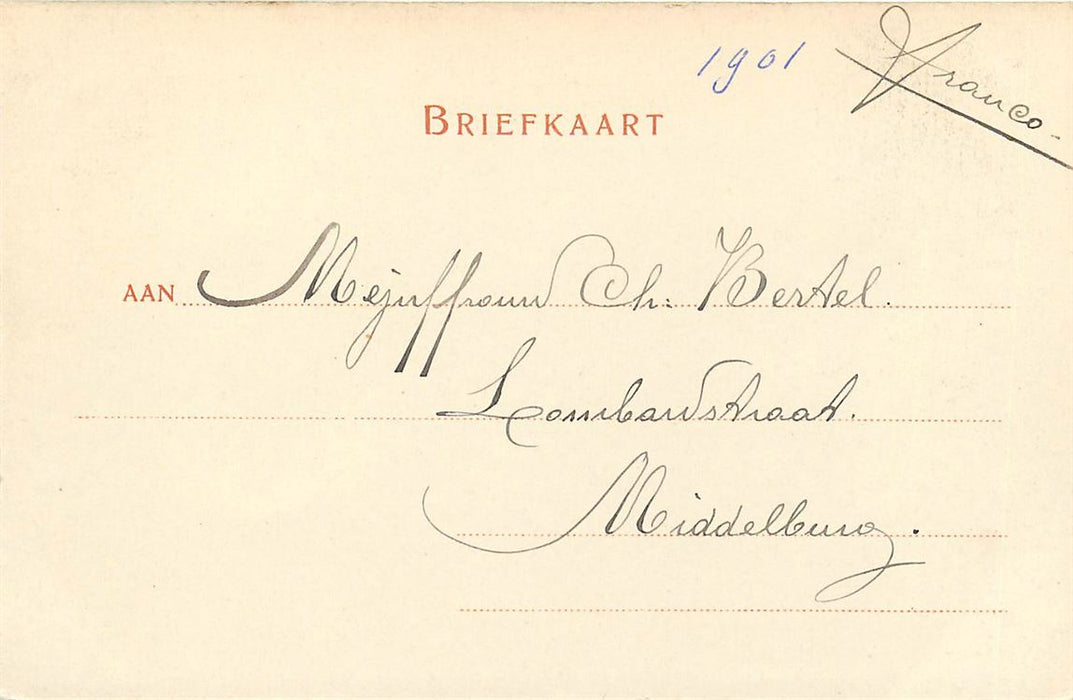 1901
Franco-
BRIEFKAART
AAN Mejuffrouw Ch: Bertel.
Lombardstraat.
Middelburg.